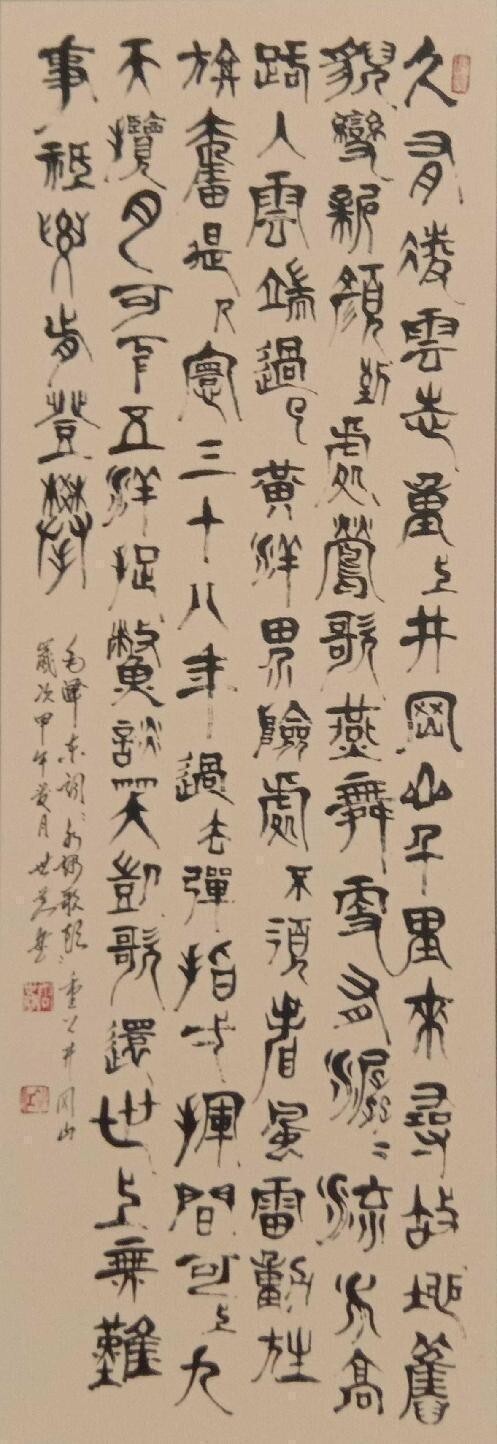 久有凌雲志重上井岡山千里来尋故地舊
貌變新顏到處鶯歌燕舞更有潺〻流水高
路人雲端過了黃洋界險處不須看風雷動旌
旗奮是人寰三十八年過去彈指一揮間可上九
天攬月可下五洋捉鱉談笑凱歌還世上無難
事祗要肯登攀
毛澤东詞水调歌頭重上井冈山
歲次甲午夏月世書